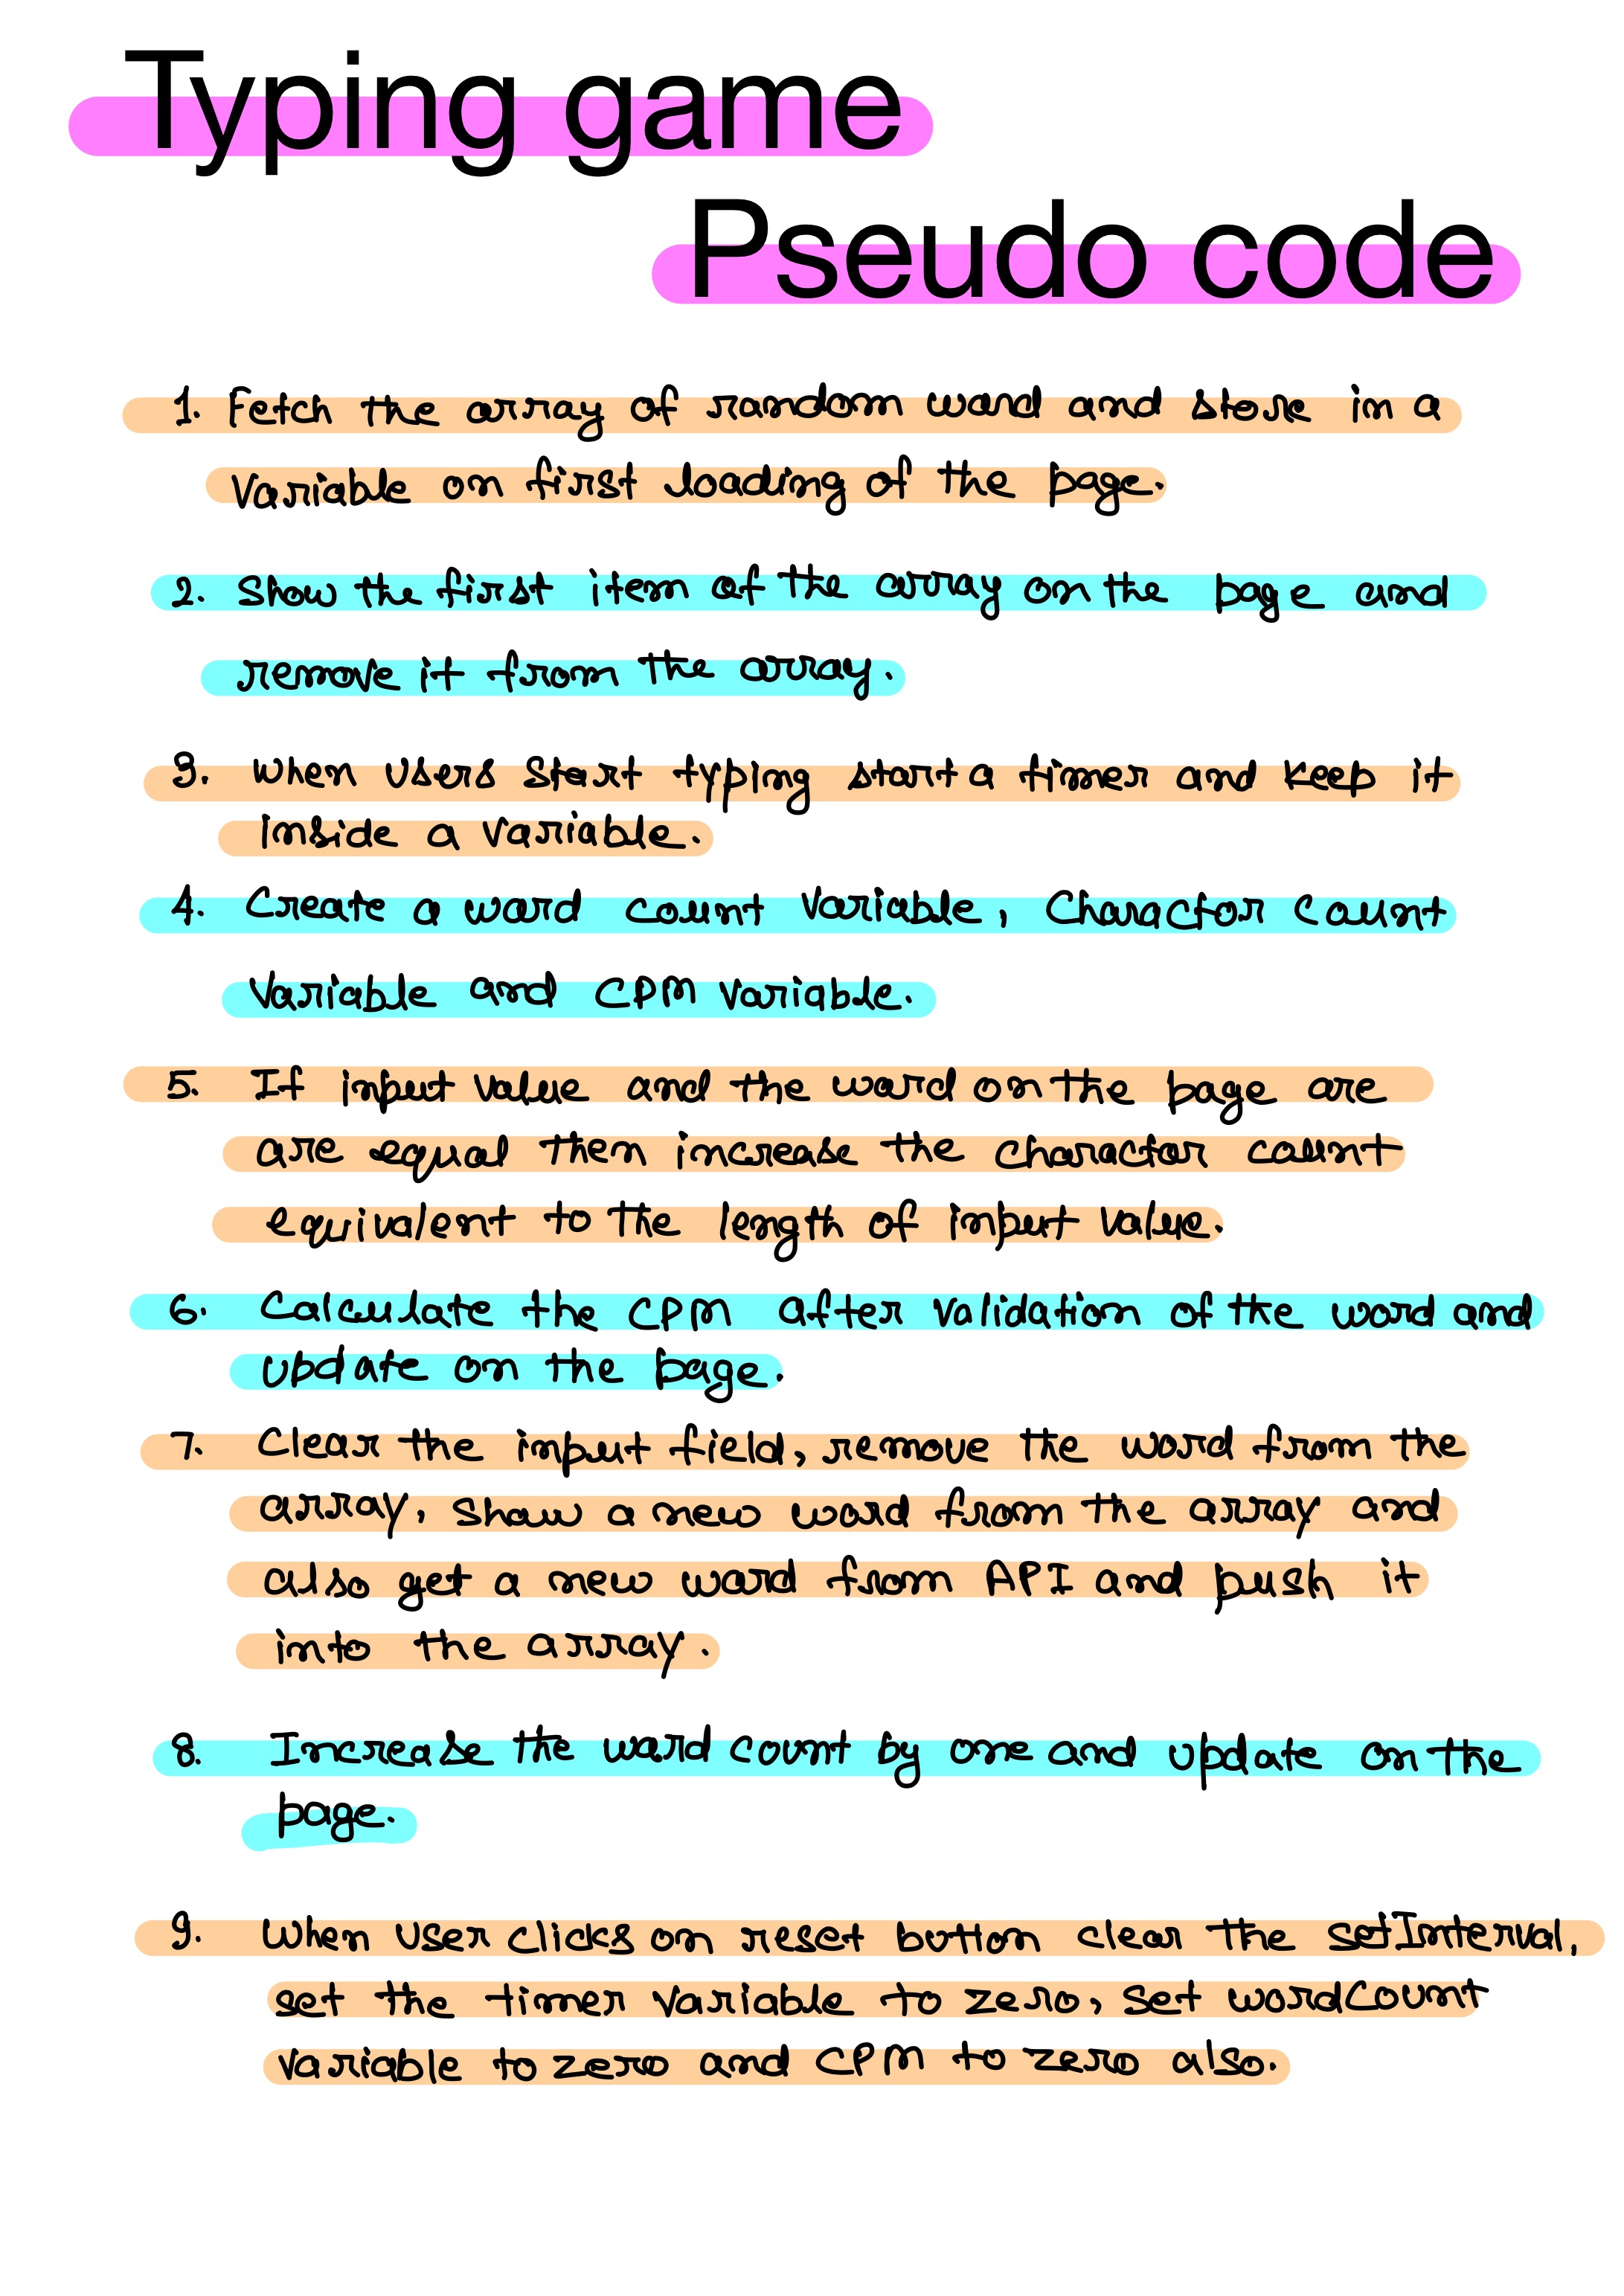 Typing game
Pseudo code
1. Fetch the array of random word and store in a
variable on first loading of the page.
2. Show the first item of the array on the page and
remove it from the array.
3. When users start typing start a timer and keep it
inside a variable.
4. Create a word count variable, Charactor count
variable and CPM variable.
5. If input value and the word on the page are
are equal then increase the charactor count
equivalent to the length of input value.
6. Calculate the CPM after validation of the word and
update on the page.
7. Clear the input field, remove the word from the
array, show a new word from the array and
also get a new word from API and push it
into the array.
8. Increase the word count by one and update on the
page.
9. When user clicks on reset button clear the setInterval,
set the timer variable to zero, set wordCount
variable to zero and CPM to zero also.